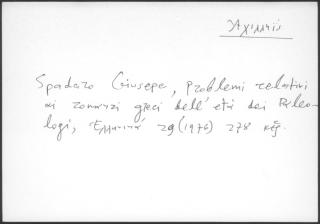 Ἀχιλληΐς
Spadaro Giuseppe, Problemi relativi
ai romanzi greci dell'età dei Paleo-
logi, Ἑλληνικά 29 (1976) 278 κἑξ.